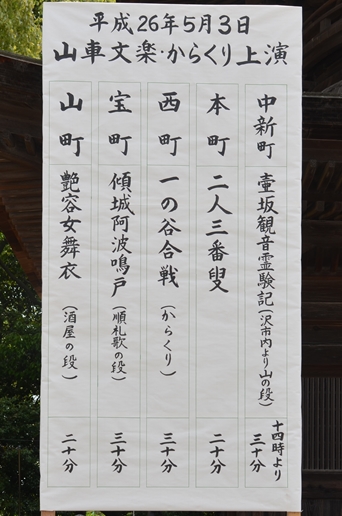 平成26年5月3日
山車文楽・からくり上演
中新町
壷坂観音霊験記(沢市内より山の段)
十四時より
三十分
本町
二人三番叟
二十分
西町
一の谷合戦(からくり)
三十分
宝町
傾城阿波鳴戸(順礼歌の段)
三十分
山町
艶容女舞衣(酒屋の段)
二十分